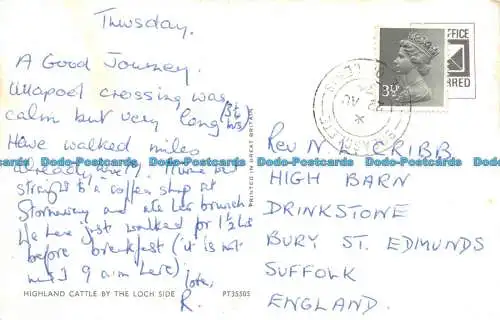 Thursday.
A Good Journey.
Ullapool crossing was
calm but very long (3½
hrs)
Have walked miles
already
straight to a coffee shop at
Stornoway and ate
We have just walked for 1½ hrs
before breakfast (it is not
9 a.m. here).
love,
R.
HIGHLAND CATTLE BY THE LOCH SIDE PT35505
PRINTED IN GREAT BRITAIN
3½
FICE
RRED
Rev N. W. CRIBB
HIGH BARN
DRINKSTONE
BURY ST. EDMUNDS
SUFFOLK
ENGLAND.
Dodo-Postcards Dodo-Postcards Dodo-Postcards Dodo-Postcards